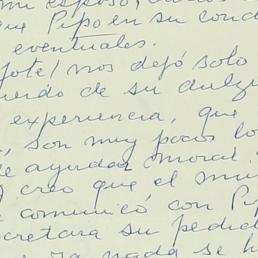 mi esposo,
que Pipo en su cond
eventuales.
nos dejó solo
de su dulzu
experiencia, que
, son muy pocos lo
de ayudar moral.
creo que el mu
comunicó con Pip
cretara su pedid
nada se h